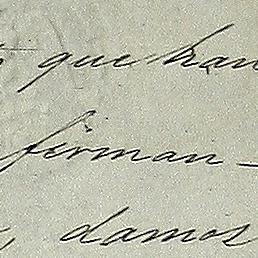 que han
firman-
damos